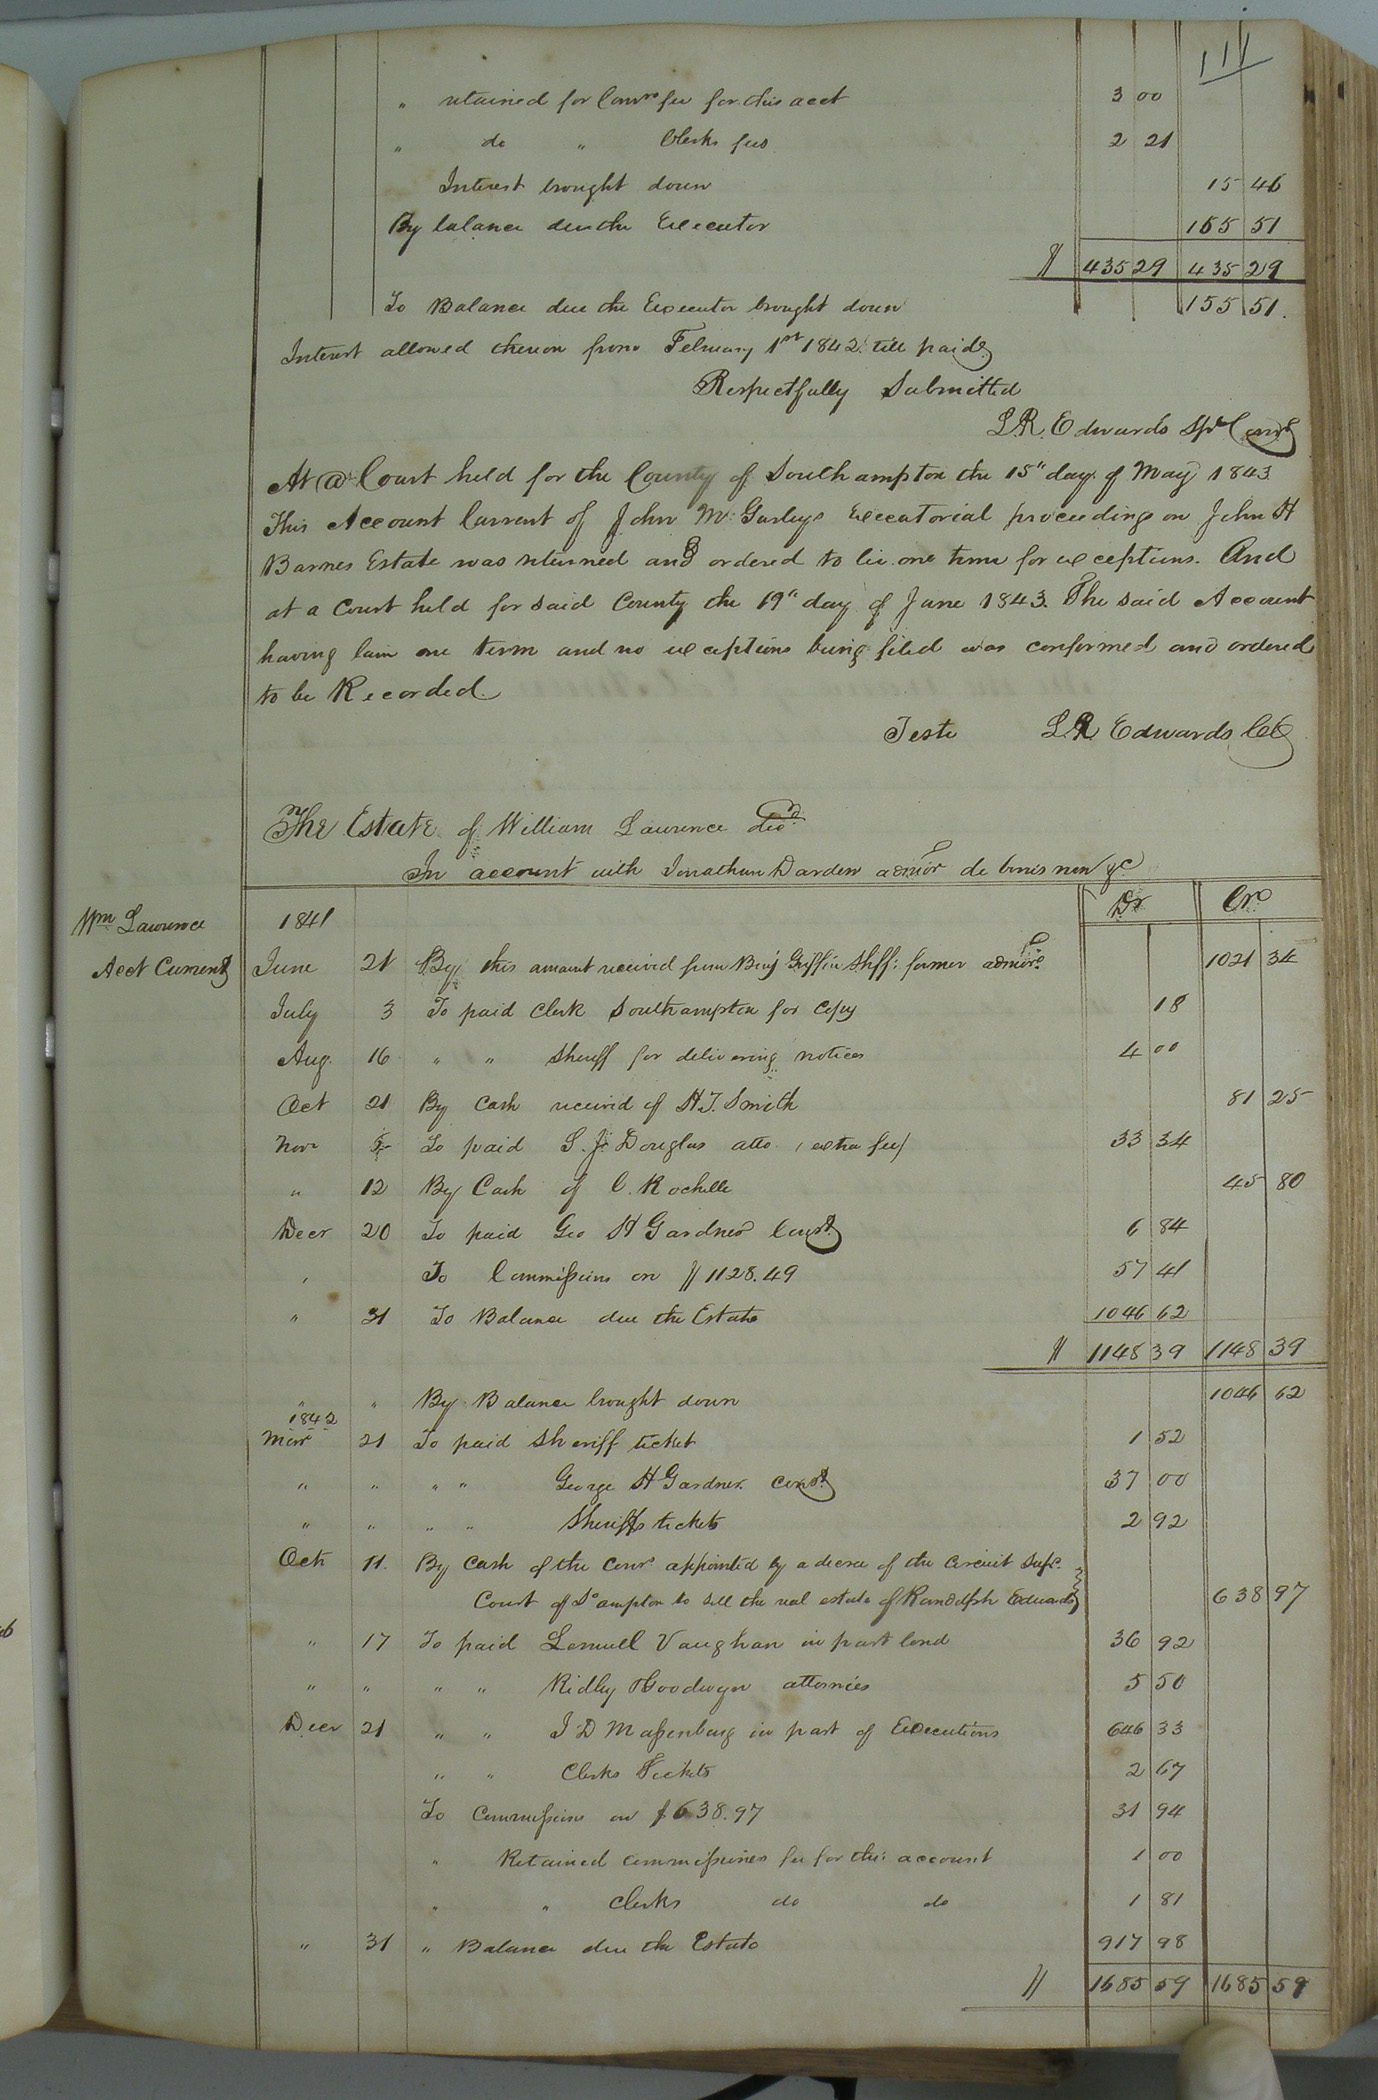 111
" retained for Comrs fee for this acct 3 00
" do " Clerks fees 2 21
Interest brought down 15 46
By balance due the Executor 155 51
$ 435 29 435 29
To Balance due the Executor brought down 155 51.
Interest allowed thereon from February 1st 1842. till paid
Respectfully Submitted
L.R. Edwards Spl Comr
At a Court held for the County of Southampton the 15" day of May 1843
This Account Current of John M. Gurleys Executorial proceedings on John H
Barnes Estate was returned and ordered to lie one term for exceptions. And
at a Court held for said County the 19" day of June 1843. The said Account
having lain one term and no exceptions being filed was confirmed and ordered
to be Recorded.
Teste L.R. Edwards CC
The Estate of William Lawrence decd
In account with Jonathan Darden admor de bonis non &c
Dr Cr
Wm Lawrence 1841
Acct Current June 21 By this amount received from Benj Griffin Shff: former admor 1021 34
July 3 To paid Clerk Southampton for copy 18
Aug. 16 " " Sheriff for delivering notices 4 00
Oct 21 By Cash received of H.T. Smith 81 25
Novr 5 To paid S. J. Douglas atto. (extra fee) 33 34
" 12 By Cash of C. Rochelle 45 80
Decr 20 To paid Geo H Gardner Const 6 84
" To Commissions on $1128.49 57 41
" 31 To Balance due the Estate 1046 62
$ 1148 39 1148 39
" " By Balance brought down 1046 62
1842
Mar 21 To paid Sheriff ticket 1 52
" " " " George H Gardner Const. 37 00
" " " " Sheriffs tickets 2 92
Oct 11. By Cash of the Comr appointed by a decree of the Circuit Supr.
Court of So ampton to sell the real estate of Randolph Edwards 638 97
" 17 To paid Lemuell Vaughan in part bond 36 92
" " " " Ridley & Goodwyn attornies 5 50
Decr 21 " " J D Massenburg in part of Executions 646 33
" " Clerks Tickets 2 67
To Commissions on $638.97 31 94
" Retained commissioners fee for this account 1 00
" " Clerks do do 1 81
" 31 " Balance due the Estate 917 98
$ 1685 59 1685 59